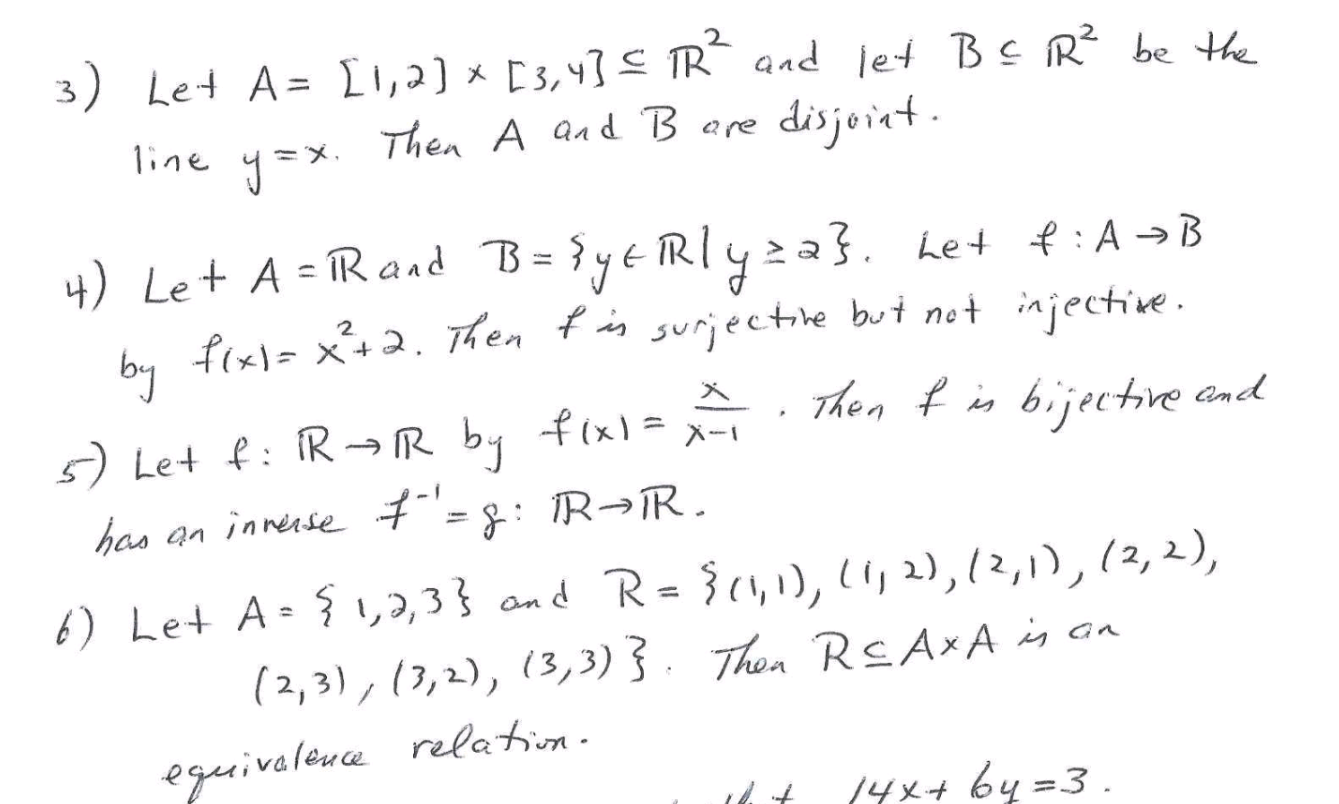 3) Let A = [1,2] × [3,4] ⊆ ℝ² and let B ⊆ ℝ² be the
line y=x. Then A and B are disjoint.
4) Let A = ℝ and B = {y ∈ ℝ | y ≥ 2}. Let f : A → B
by f(x) = x²+2. Then f is surjective but not injective.
5) Let f : ℝ → ℝ by f(x) = x/(x-1). Then f is bijective and
has an inverse f⁻¹ = g : ℝ → ℝ.
6) Let A = {1,2,3} and R = {(1,1), (1,2), (2,1), (2,2),
(2,3), (3,2), (3,3)}. Then R ⊆ A×A is an
equivalence relation.
14x + 6y = 3.